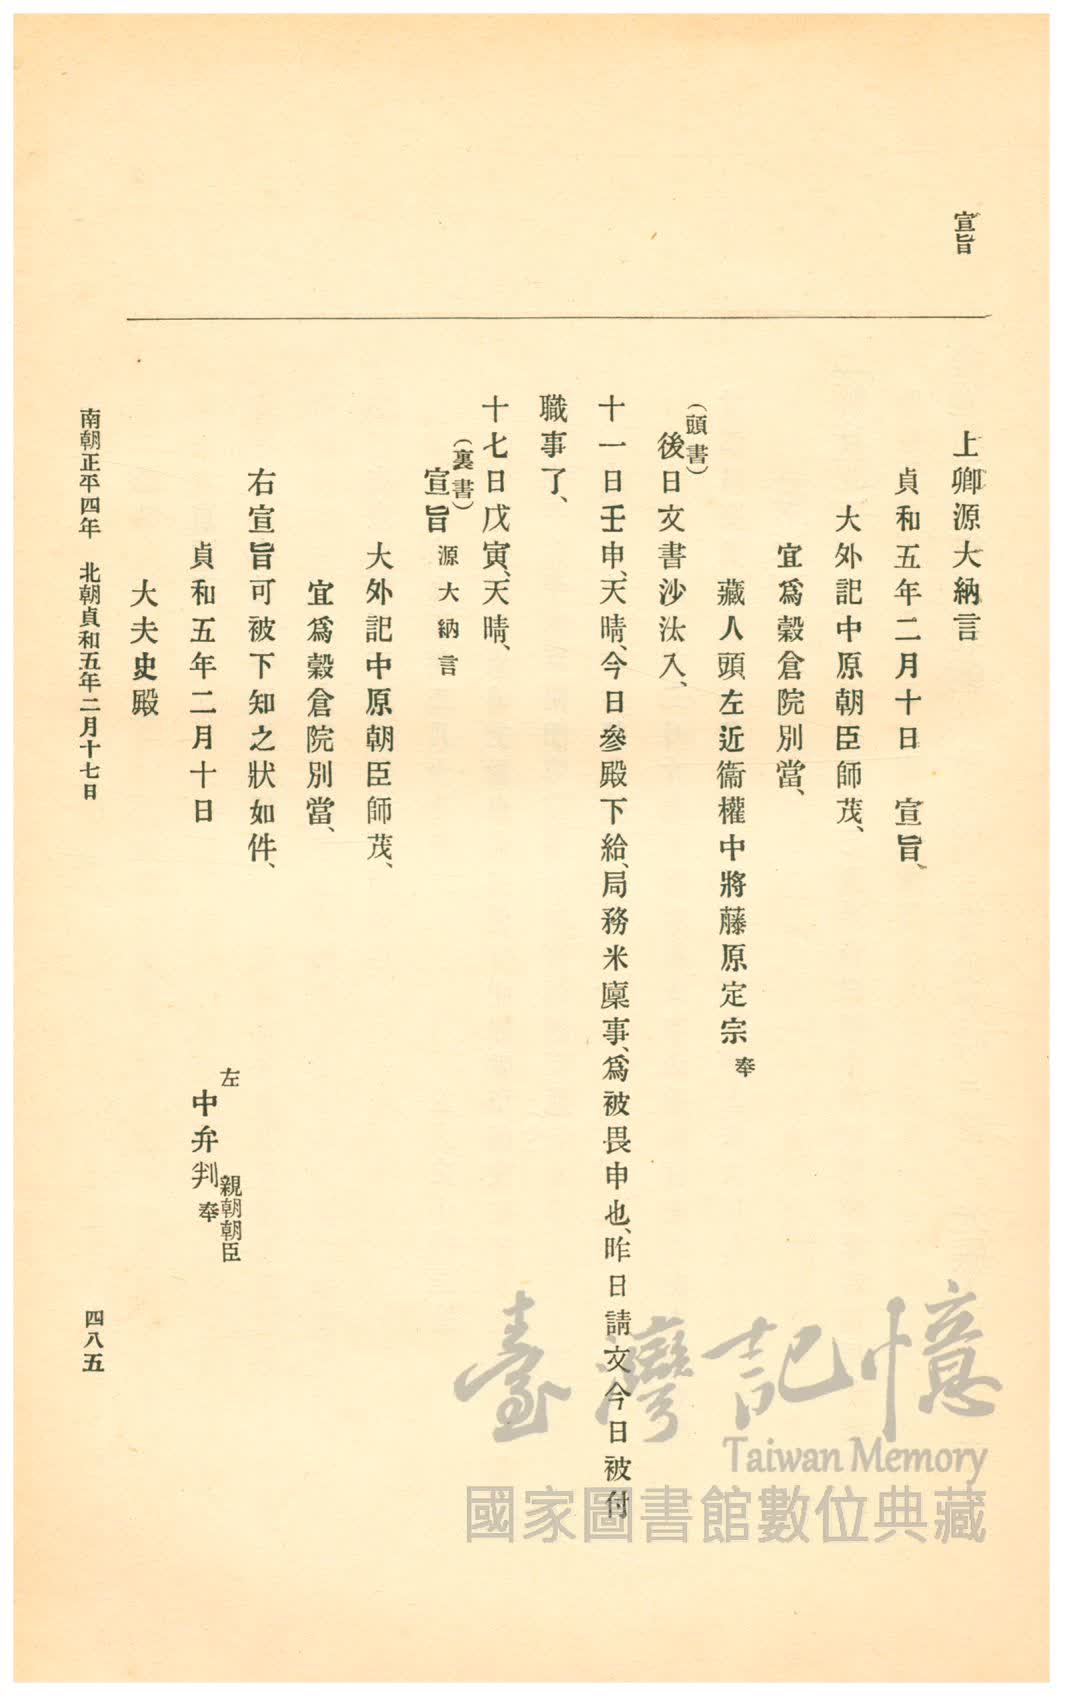 宣旨
上卿源大納言
貞和五年二月十日　宣旨、
大外記中原朝臣師茂、
宜爲穀倉院別當、
藏人頭左近衞權中將藤原定宗奉
(頭書)
後日文書沙汰入、
十一日壬申、天晴、今日參殿下給、局務米廩事、爲被畏申也、昨日請文今日被付
職事了、
十七日戊寅、天晴、
(裏書)
宣旨 源大納言
大外記中原朝臣師茂、
宜爲穀倉院別當、
右宣旨可被下知之狀如件、
貞和五年二月十日
左中弁判奉
親朝朝臣
大夫史殿
南朝正平四年　北朝貞和五年二月十七日
四八五
臺灣記憶
Taiwan Memory
國家圖書館數位典藏